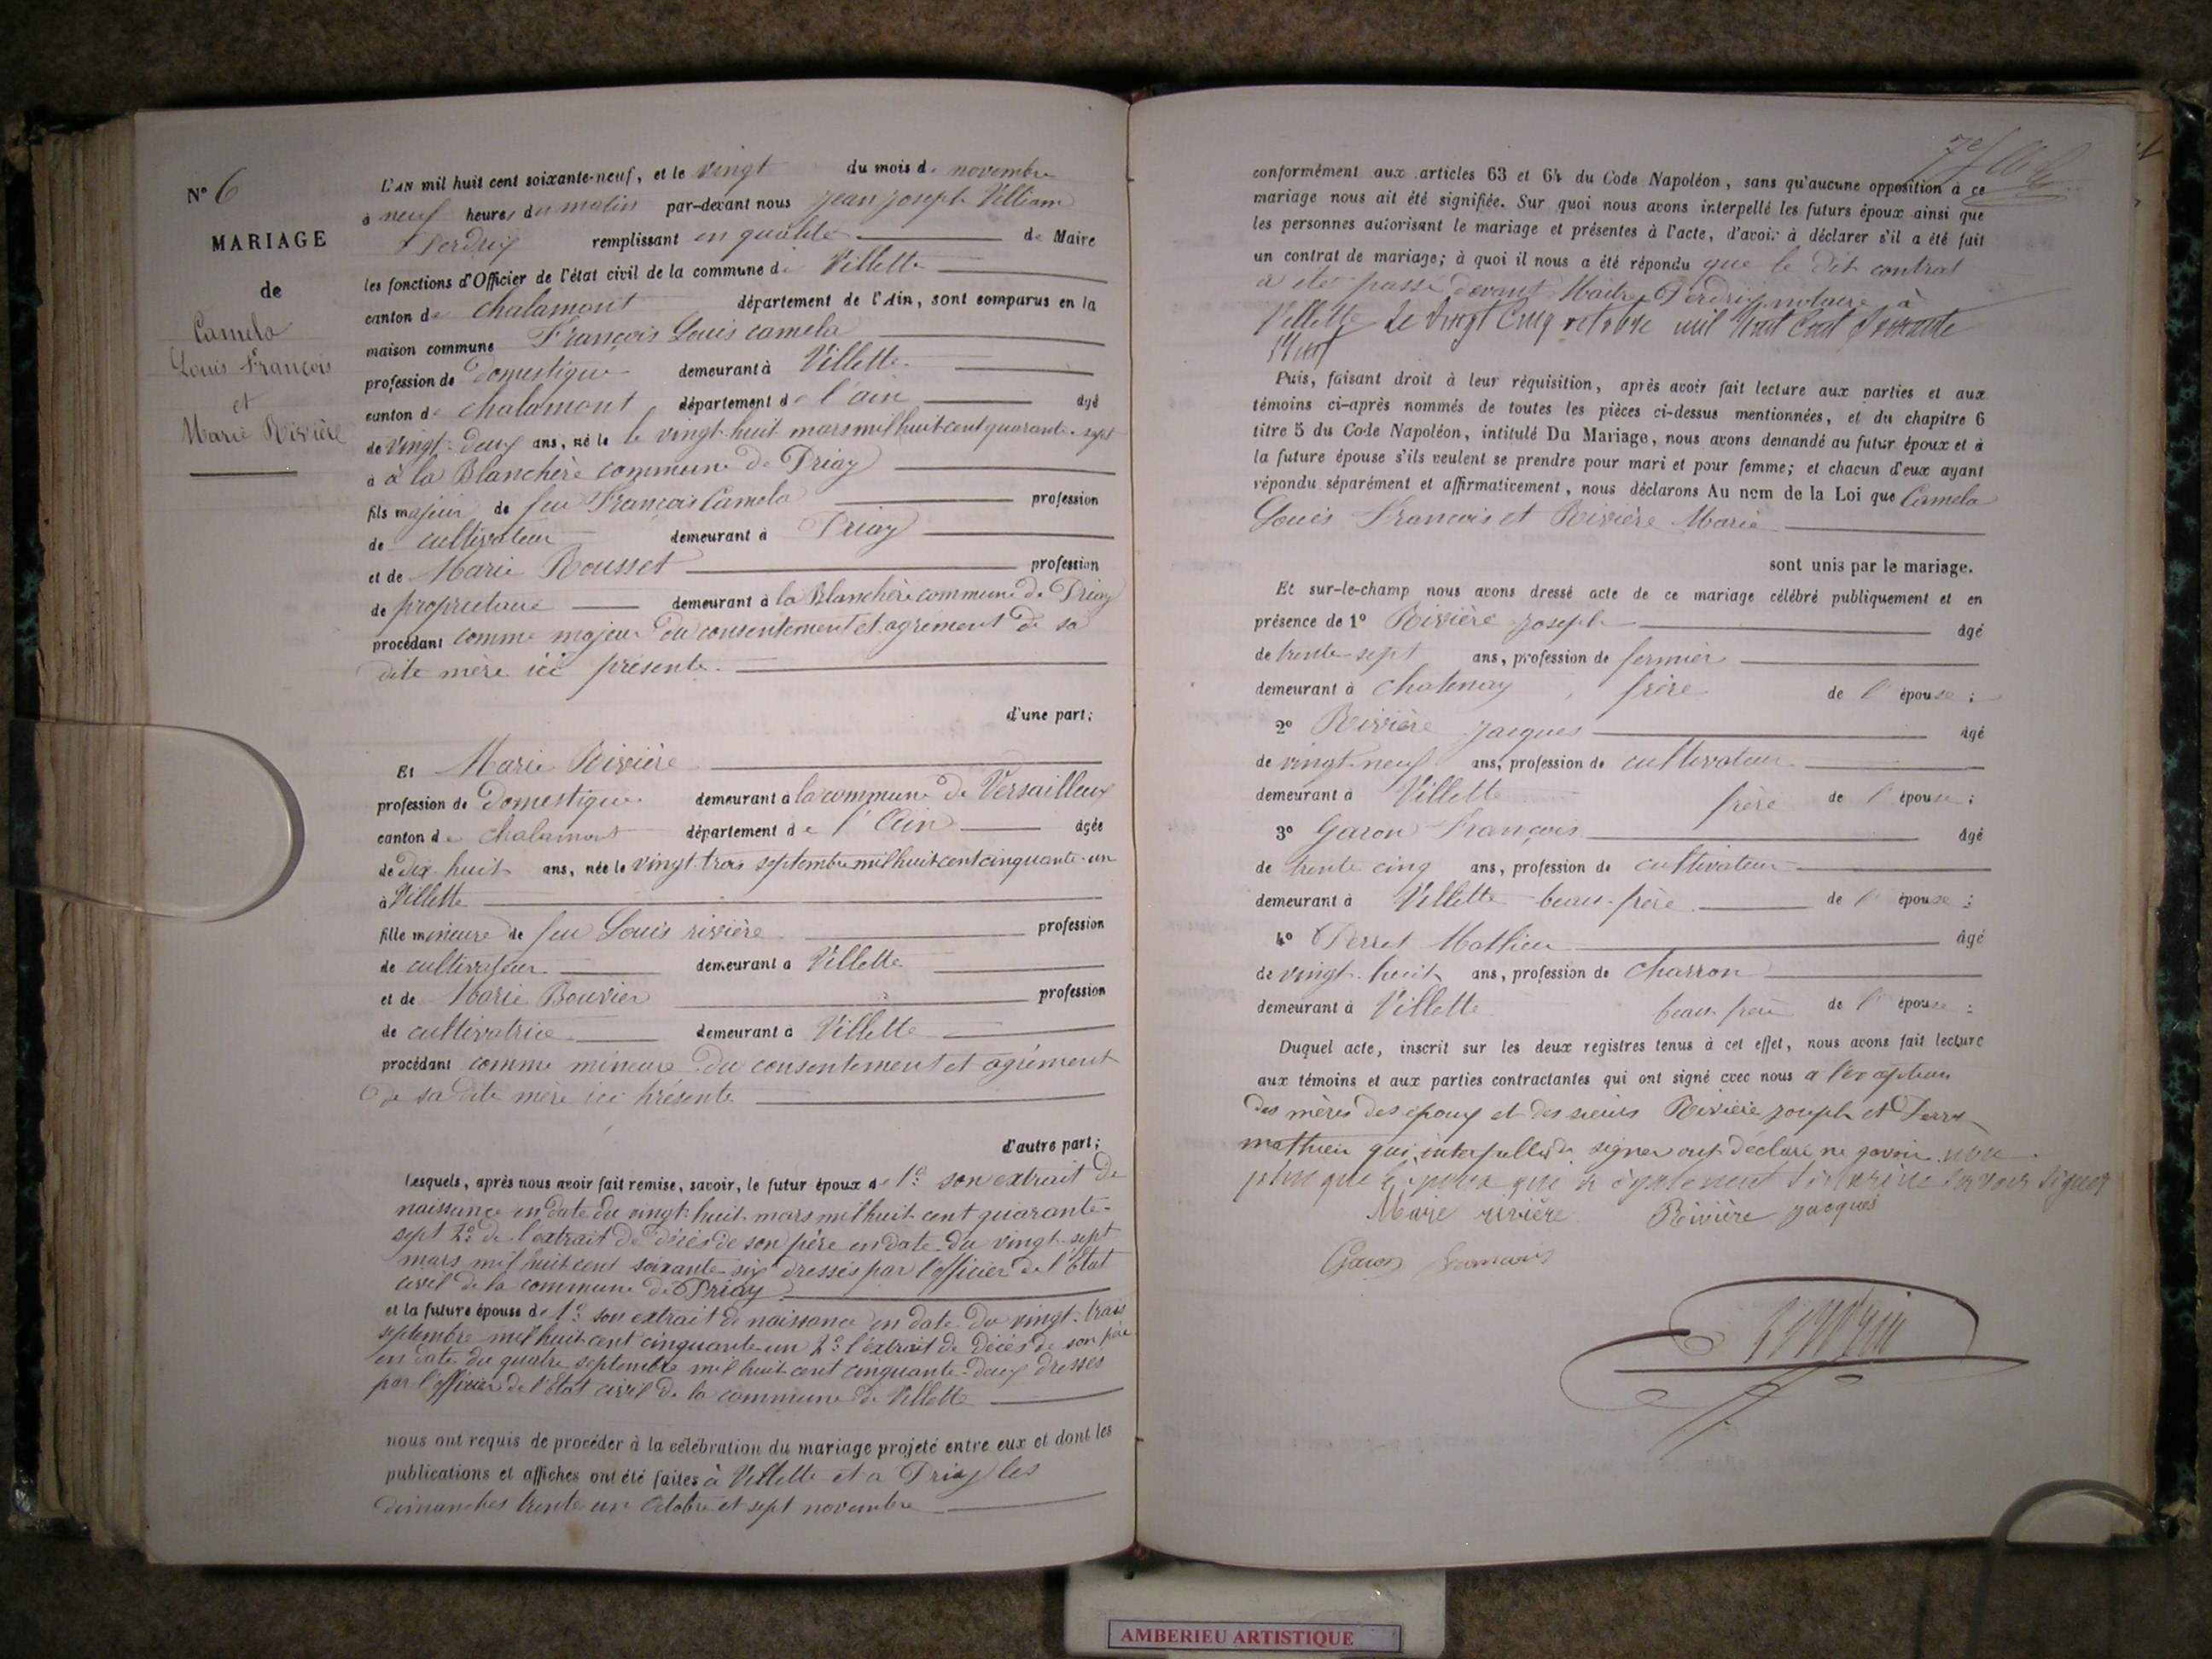 N° 6
MARIAGE
de
Camela
Louis François
et
Marie Rivière
L'AN mil huit cent soixante-neuf, et le vingt du mois de novembre
à neuf heures du matin par-devant nous jean joseph Villiam
Perdrix remplissant en qualité de Maire
les fonctions d'Officier de l'état civil de la commune de Villette
canton de chalamont département de l'Ain, sont comparus en la
maison commune François Louis camela
profession de domestique demeurant à Villette
canton de chalamont département de l'ain âgé
de vingt-deux ans, né le le vingt-huit mars mil huit cent quarante-sept
à à la Blanchère commune de Priay
fils majeur de feu François Camela profession
de cultivateur demeurant à Priay
et de Marie Rousset profession
de propriétaire demeurant à la Blanchère commune de Priay
procédant comme majeur du consentement et agrément de sa
dite mère ici présente.
d'une part;
Et Marie Rivière
profession de domestique demeurant à la commune de Versailleux
canton de chalamont département de l'Ain âgée
de dix huit ans, née le vingt-trois septembre mil huit cent cinquante-un
à Villette
fille mineure de feu Louis rivière profession
de cultivateur demeurant à Villette
et de Marie Bouvier profession
de cultivatrice demeurant à Villette
procédant comme mineure du consentement et agrément
de sa dite mère ici présente
d'autre part;
Lesquels, après nous avoir fait remise, savoir, le futur époux de 1° son extrait de
naissance en date du vingt-huit mars mil huit cent quarante-
sept 2° de l'extrait de décès de son père en date du vingt-sept
mars mil huit cent soixante-six dressés par l'officier de l'État
civil de la commune de Priay
et la future épouse de 1° son extrait de naissance en date du vingt-trois
septembre mil huit cent cinquante-un 2° l'extrait de décès de son père
en date du quatre septembre mil huit cent cinquante-deux dressés
par l'officier de l'État civil de la commune de Villette
nous ont requis de procéder à la célébration du mariage projeté entre eux et dont les
publications et affiches ont été faites à Villette et à Priay les
dimanches trente-un octobre et sept novembre
conformément aux articles 63 et 64 du Code Napoléon, sans qu'aucune opposition à ce
mariage nous ait été signifiée. Sur quoi nous avons interpellé les futurs époux ainsi que
les personnes autorisant le mariage et présentes à l'acte, d'avoir à déclarer s'il a été fait
un contrat de mariage; à quoi il nous a été répondu que le dit contrat
a été passé devant Maître Perdrix notaire à
Villette le vingt cinq octobre mil huit cent soixante
neuf
Puis, faisant droit à leur réquisition, après avoir fait lecture aux parties et aux
témoins ci-après nommés de toutes les pièces ci-dessus mentionnées, et du chapitre 6
titre 5 du Code Napoléon, intitulé Du Mariage, nous avons demandé au futur époux et à
la future épouse s'ils veulent se prendre pour mari et pour femme; et chacun d'eux ayant
répondu séparément et affirmativement, nous déclarons Au nom de la Loi que Camela
Louis François et Rivière Marie
sont unis par le mariage.
Et sur-le-champ nous avons dressé acte de ce mariage célébré publiquement et en
présence de 1° Rivière joseph âgé
de trente-sept ans, profession de fermier
demeurant à chatenay, frère de l'épouse;
2° Rivière jacques âgé
de vingt-neuf ans, profession de cultivateur
demeurant à Villette frère de l'épouse;
3° Garon François âgé
de trente cinq ans, profession de cultivateur
demeurant à Villette beau-frère de l'épouse;
4° Perret Mathieu âgé
de vingt-huit ans, profession de charron
demeurant à Villette beau-frère de l'épouse;
Duquel acte, inscrit sur les deux registres tenus à cet effet, nous avons fait lecture
aux témoins et aux parties contractantes qui ont signé avec nous a l'exception
des mères des époux et des sieurs Rivière joseph et Perret
mathieu qui interpellés de signer ont déclaré ne savoir non
plus que l'époux qui a également signer
Marie rivière Rivière jacques
Garon francois
Perdrix
AMBERIEU ARTISTIQUE